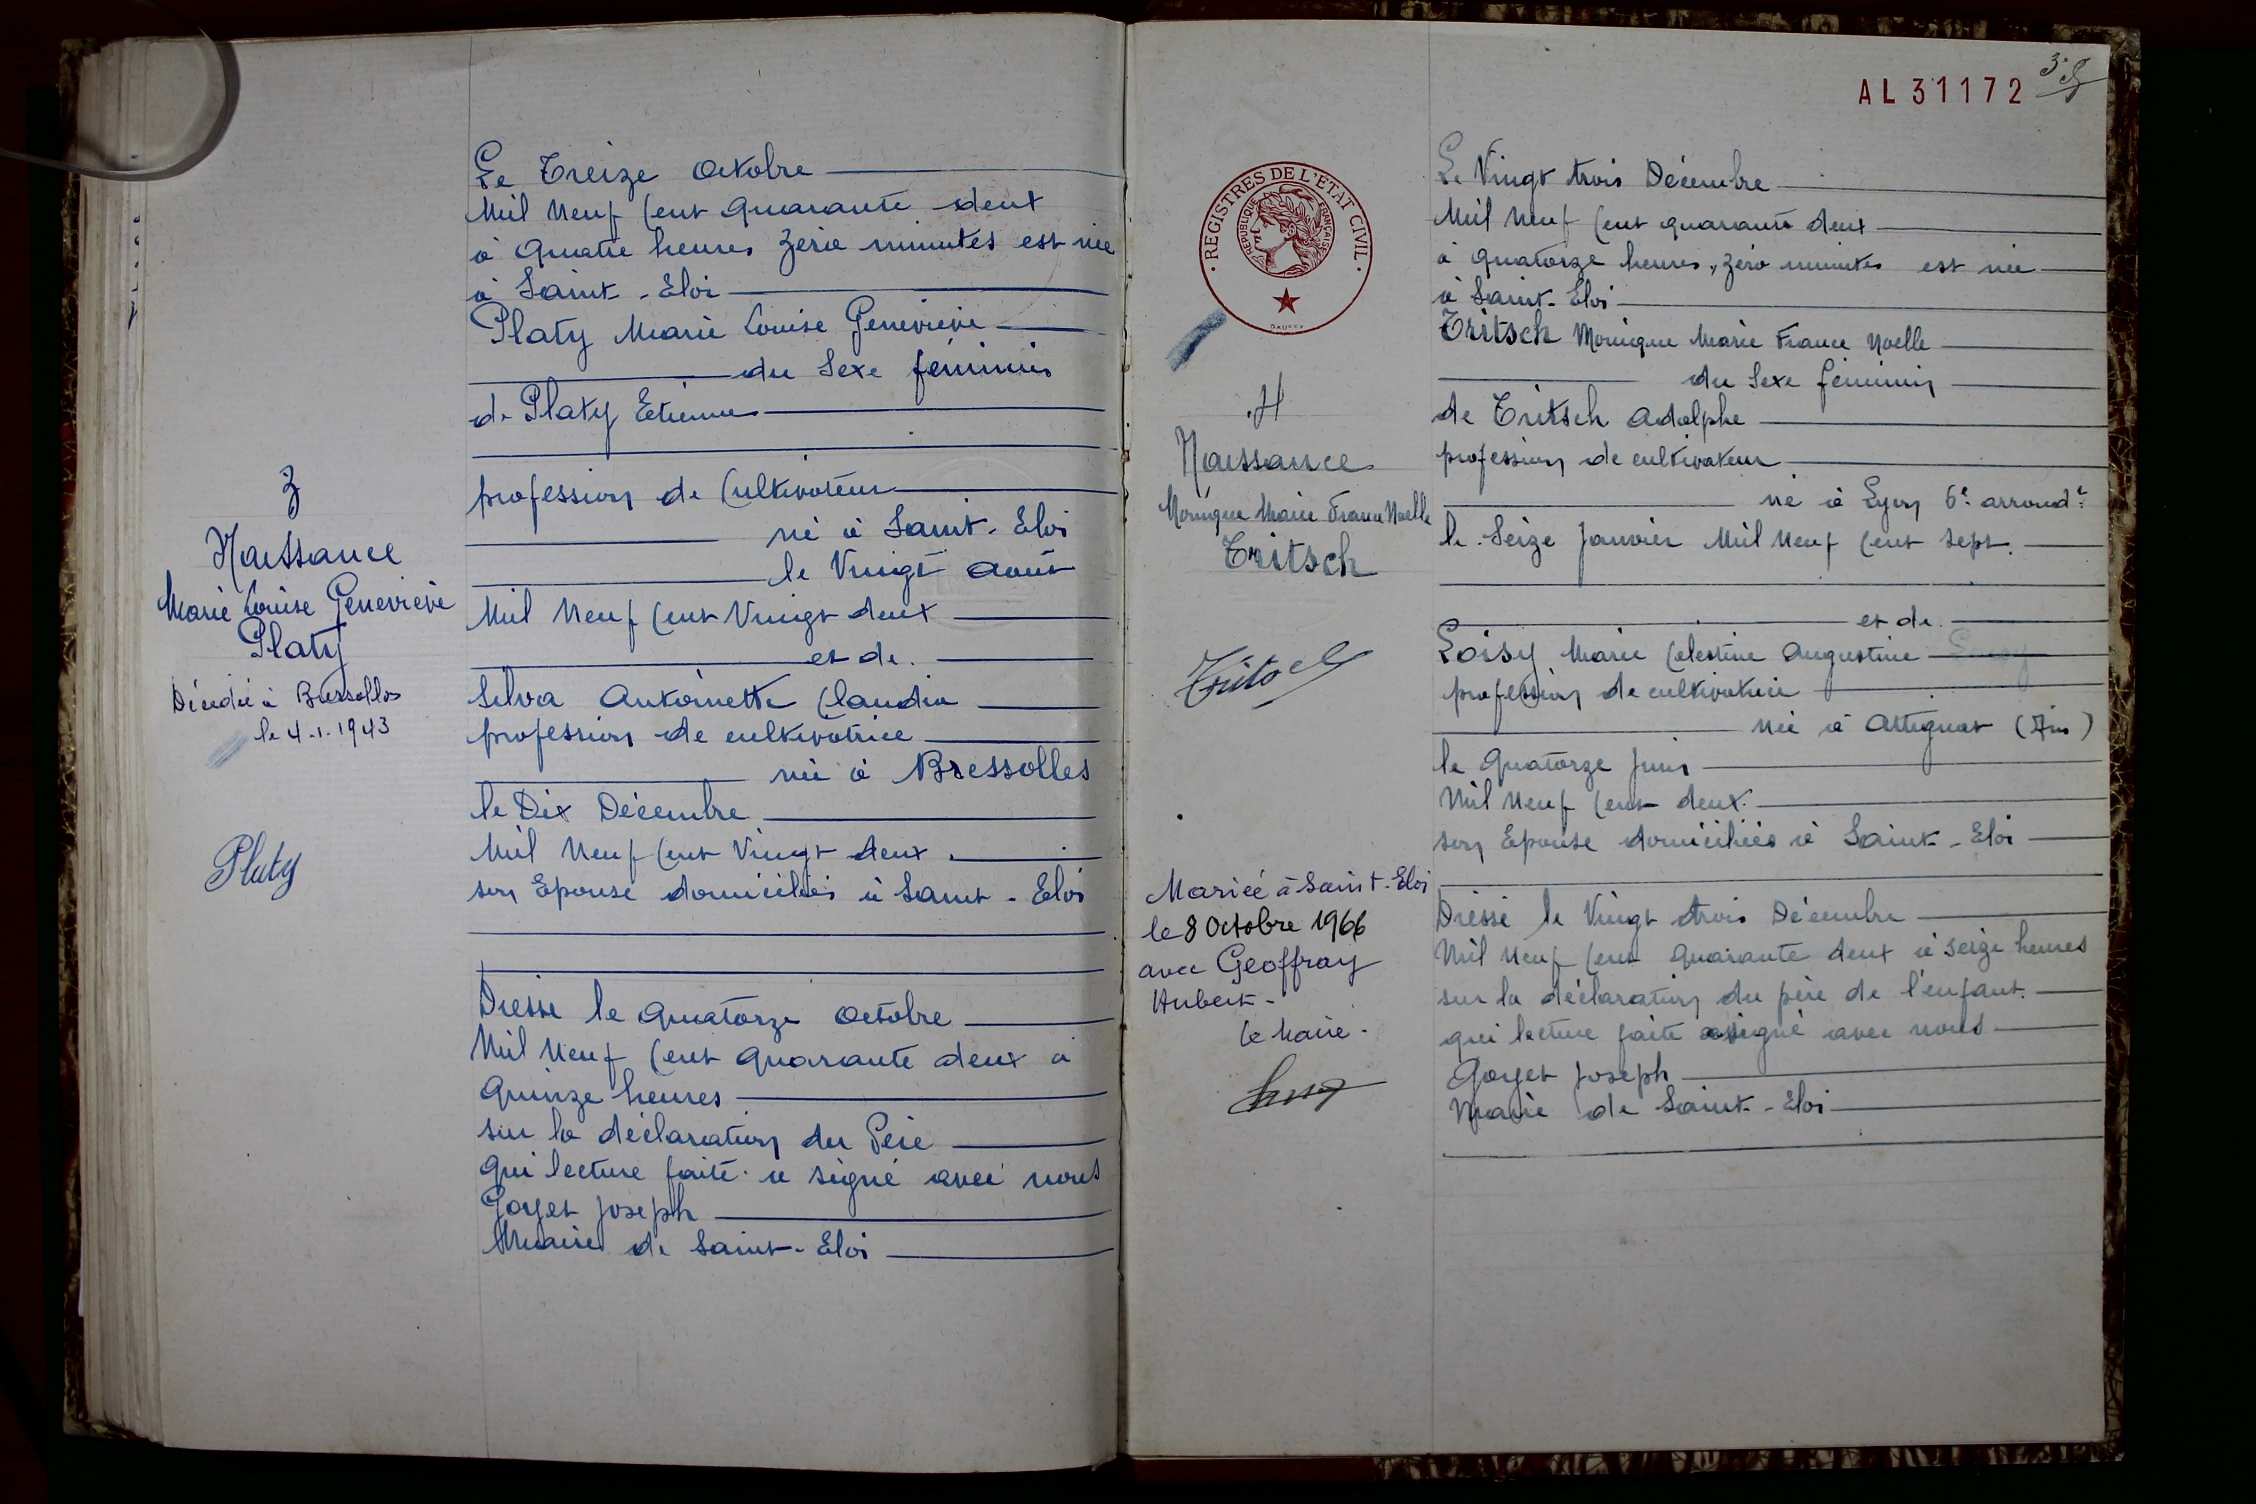 Le Treize Octobre
Mil Neuf Cent Quarante deux
à Quatre heures Zério minutes est née
à Saint-Eloi
Platy Marie Louise Geneviève
du Sexe féminin
de Platy Etienne
profession de Cultivateur
né à Saint-Eloi
le Vingt Août
Mil Neuf Cent Vingt deux
et de.
Silva Antoinette Claudia
profession de cultivatrice
née à Bressolles
le Dix Décembre
Mil Neuf Cent Vingt deux.
son Epouse domiciliés à Saint-Eloi
Dressé le Quatorze Octobre
Mil Neuf Cent Quarante deux à
Quinze heures
sur la déclaration du Père
Qui lecture faite a signé avec nous
Goyet Joseph
Maire de Saint-Eloi
3
Naissance
Marie Louise Geneviève
Platy
Décédée à Bressolles
le 4.1.1943
Platy
AL 31172
REGISTRES DE L'ETAT CIVIL
REPUBLIQUE FRANÇAISE
4
Naissance
Monique Marie France Noelle
Tritsch
Tritsch
Mariée à Saint-Eloi
le 8 Octobre 1966
avec Geoffray
Hubert-
Le Maire.
Le Vingt trois Décembre
Mil Neuf Cent quarante deux
à quatorze heures, zéro minutes est née
à Saint-Eloi
Tritsch Monique Marie France Noelle
du Sexe féminin
de Tritsch Adolphe
profession de cultivateur
né à Lyon 6e arrondt
le Seize Janvier Mil Neuf Cent Sept.
et de
Loisy Marie Celestine Augustine
profession de cultivatrice
née à Attignat (Ain)
le Quatorze Juin
Mil Neuf Cent deux.
son Epouse domiciliés à Saint-Eloi
Dressé le Vingt trois Décembre
Mil Neuf Cent Quarante deux à seize heures
sur la déclaration du père de l'enfant.
qui lecture faite a signé avec nous
Goyet Joseph
Maire de Saint-Eloi